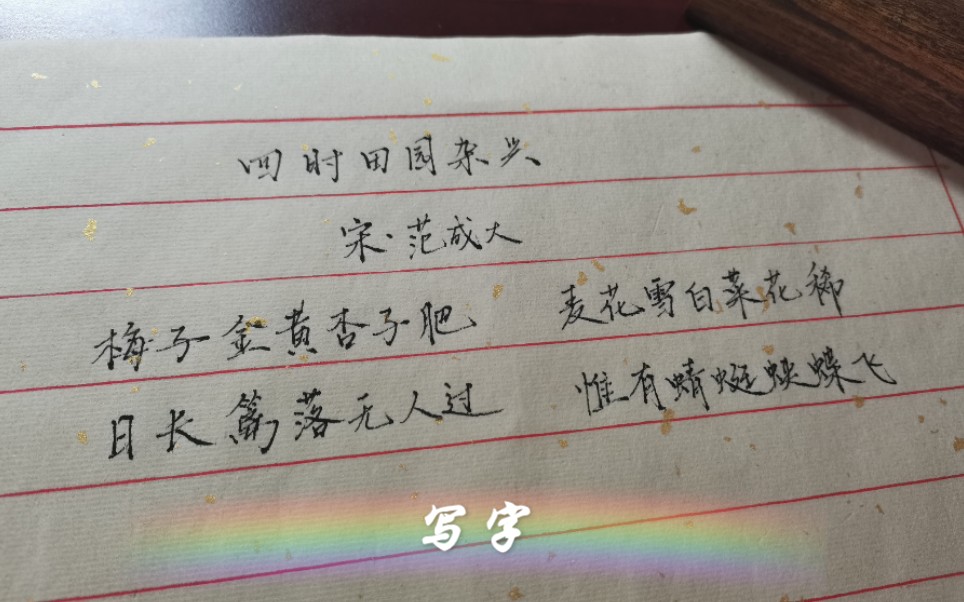 四时田园杂兴
宋·范成大
梅子金黄杏子肥 麦花雪白菜花稀
日长篱落无人过 惟有蜻蜓蛱蝶飞
写字